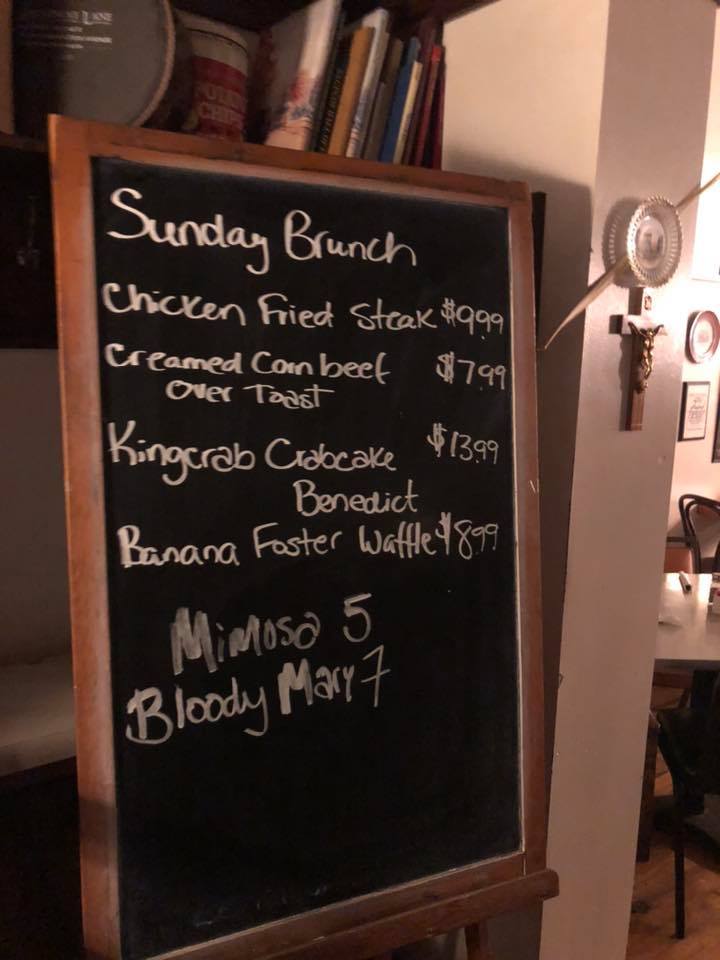 POTATO
CHIPS
Sunday Brunch
Chicken Fried Steak $9.99
Creamed Corn beef $7.99
over Toast
Kingcrab Crabcake $13.99
Benedict
Banana Foster Waffle $8.99
Mimosa 5
Bloody Mary 7